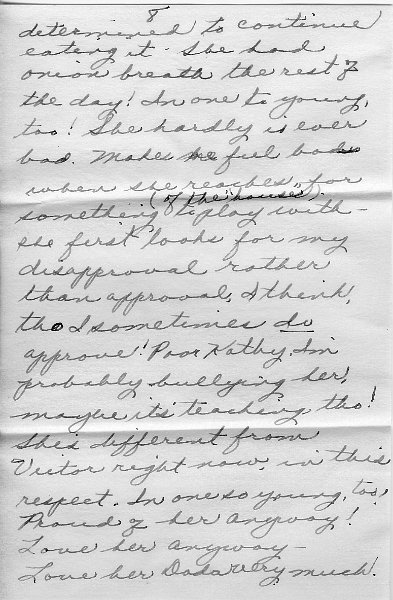 8
determined to continue
eating it. She had
onion breath the rest of
the day! In one so young,
too! She hardly is ever
bad. Makes me feel bad
when she reaches for
(of the house)
something to play with -
she first looks for my
disapproval rather
than approval, I think,
tho I sometimes do
approve! Poor Kathy, I'm
probably bullying her,
maybe it's teaching, tho!
She's different from
Victor right now, in this
respect. In one so young, too!
Proud of her anyway!
Love her anyway -
Love her Dada very much!